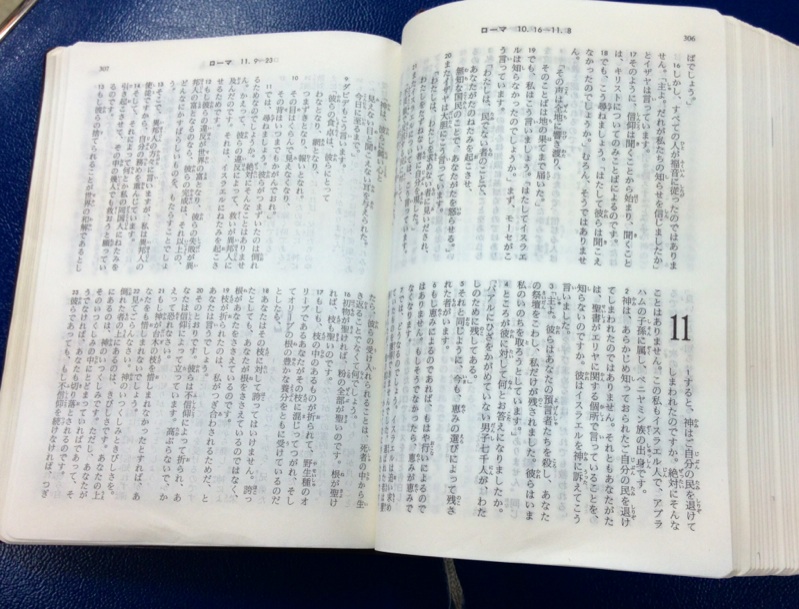 306
ローマ 10.16―11.8
ばでしょう。」
16 しかし、すべての人が福音に従ったのではありま
せん。「主よ。だれが私たちの知らせを信じましたか」
とイザヤは言っています。
17 そのように、信仰は聞くことから始まり、聞くこと
は、キリストについてのみことばによるのです。
18 でも、こう尋ねましょう。「はたして彼らは聞こえ
なかったのでしょうか。」むろん、そうではありませ
「その声は全地に響き渡り、
そのことばは地の果てまで届いた。」
19 でも、私はこう言いましょう。「はたしてイスラエ
ルは知らなかったのでしょうか。」まず、モーセがこ
う言っています。
「わたしは、民でない者のことで、
あなたがたのねたみを起こさせ、
無知な国民のことで、あなたがたを怒らせる。」
20 またイザヤは大胆にこう言っています。
「わたしは、わたしを求めない者に見いだされ、
わたしをたずねない者に自分を現した。」
21
11
1 すると、神はご自分の民を退けて
しまわれたのですか。絶対にそんな
ことはありません。この私もイスラエル人で、アブラ
ハムの子孫に属し、ベニヤミン族の出身です。
2 神は、あらかじめ知っておられたご自分の民を退け
てしまわれたのではありません。それともあなたがた
は、聖書がエリヤに関する個所で言っていることを、
知らないのですか。彼はイスラエルを神に訴えてこう
言いました。
3 「主よ。彼らはあなたの預言者たちを殺し、あなた
の祭壇をこわし、私だけが残されました。彼らはいま
私のいのちを取ろうとしています。」
4 ところが彼に対して何とお答えになりましたか。
「バアルにひざをかがめていない男子七千人が、わた
しのために残してある。」
5 それと同じように、今も、恵みの選びによって残さ
れた者がいます。
6 もし恵みによるのであれば、もはや行いによるので
はありません。もしそうでなかったら、恵みが恵みで
なくなります。
307
ローマ 11.9―23
見えない目と聞こえない耳を与えられた。
今日に至るまで。」
9 ダビデもこう言います。
「彼らの食卓は、彼らにとって
わなとなり、網となり、
つまずきとなり、報いとなれ。
10 その目はくらんで見えなくなり、
その背はいつまでもかがんでおれ。」
11 では、尋ねましょう。彼らがつまずいたのは倒れ
るためなのでしょうか。絶対にそんなことはありませ
ん。かえって、彼らの違反によって、救いが異邦人に
及んだのです。それは、イスラエルにねたみを起こさ
せるためです。
12 もし彼らの違反が世界の富となり、彼らの失敗が異
邦人の富となるのなら、彼らの完成は、それ以上の、
どんなにかすばらしいものを、もたらすことでしょう。
13 そこで、異邦人の方々に言いますが、私は異邦人の
使徒ですから、自分の務めを重んじています。
14 そして、それによって何とか私の同国人にねたみを
引き起こさせて、その中の幾人でも救おうと願ってい
るのです。
15 もし彼らの捨てられることが世界の和解であるとし
たら、彼らの受け入れられることは、死者の中から生
き返ることでなくて何でしょう。
16 初物が聖ければ、粉の全部が聖いのです。根が聖け
れば、枝も聖いのです。
17 もしも、枝の中のあるものが折られて、野生種のオ
リーブであるあなたがその枝に混じってつがれ、そし
てオリーブの根の豊かな養分をともに受けているのだ
としたら、
18 あなたはその枝に対して誇ってはいけません。誇っ
たとしても、あなたが根をささえているのではなく、
根があなたをささえているのです。
19 枝が折られたのは、私がつぎ合わされるためだ、と
あなたは言うでしょう。
20 そのとおりです。彼らは不信仰によって折られ、あ
なたは信仰によって立っています。高ぶらないで、か
えって恐れなさい。
21 もし神が台木の枝を惜しまれなかったとすれば、あ
なたをも惜しまれないでしょう。
22 見てごらんなさい。神のいつくしみときびしさを。
倒れた者の上にあるのは、きびしさです。あなたの上
にあるのは、神のいつくしみです。ただし、あなたが
そのいつくしみの中にとどまっていればであって、そ
うでなければ、あなたも切り落とされるのです。
23 彼らであっても、もし不信仰を続けなければ、つぎ